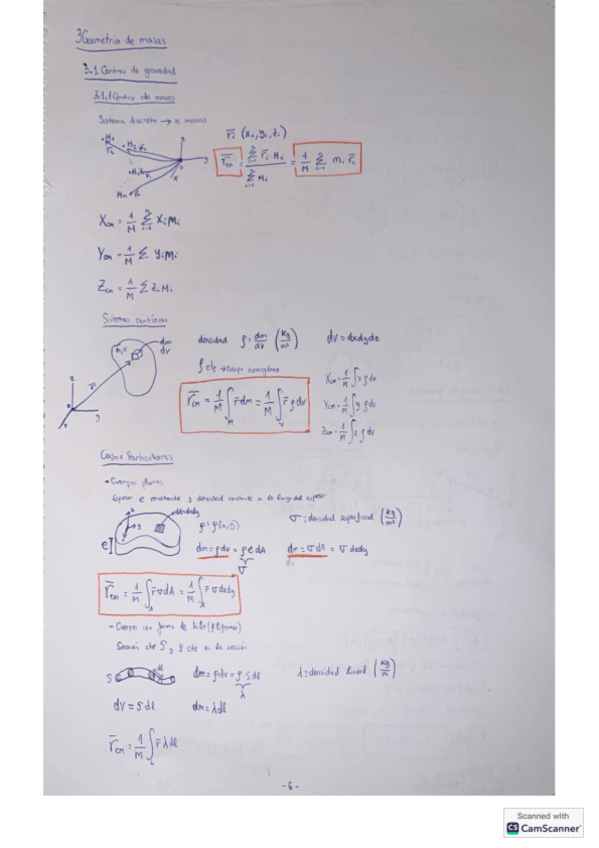 3 Geometría de masas
3.1 Centros de gravedad
3.1.1 Centro de masas
Sistema discreto → n masas
r̄ᵢ (xᵢ, yᵢ, zᵢ)
r̄cm = Σ r̄ᵢ Mᵢ / Σ Mᵢ = 1/M Σ mᵢ r̄ᵢ
Xcm = 1/M Σ xᵢ mᵢ
Ycm = 1/M Σ yᵢ mᵢ
Zcm = 1/M Σ zᵢ Mᵢ
Sistema continuo
densidad ρ = dm/dV (kg/m³) dV = dxdydz
dm
dV
ρ cte → cuerpo homogéneo
r̄cm = 1/M ∫ r̄ dm = 1/M ∫ r̄ ρ dV
Xcm = 1/M ∫ x ρ dV
Ycm = 1/M ∫ y ρ dV
Zcm = 1/M ∫ z ρ dV
Casos Particulares
- Cuerpos planos
Espesor e constante y densidad constante a lo largo del espesor
dA=dxdy
ρ = ρ(x,y) σ: densidad superficial (kg/m²)
e
dm = ρdV = ρe dA dm = σ dA = σ dxdy
σ
r̄cm = 1/M ∫ r̄ σ dA = 1/M ∫ r̄ σ dxdy
- Cuerpos con forma de hilo
Sección cte S, ρ cte en la sección
S dl dm = ρdV = ρ·S dl λ = densidad lineal (kg/m)
λ
dV = S·dl dm = λdl
r̄cm = 1/M ∫ r̄ λ dl
- 6 -
Scanned with
CS CamScanner